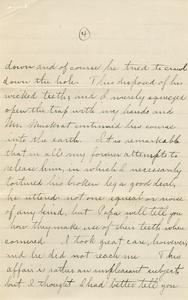 4
down and of course he tried to crawl
down the hole. This disposed of his
wicked teeth, and I merely squeezed
open the trap with my hands and
Mr. Muskrat continued his course
into the earth. It is remarkable
that in all my former attempts to
release him, in which I necessarily
tortured his broken leg a good deal,
he uttered not one squeal or noise
of any kind, but Papa will tell you
how they make use of their teeth when
cornered. I took great care, however,
and he did not reach me. This
affair is rather an unpleasant subject,
but I thought I had better tell you